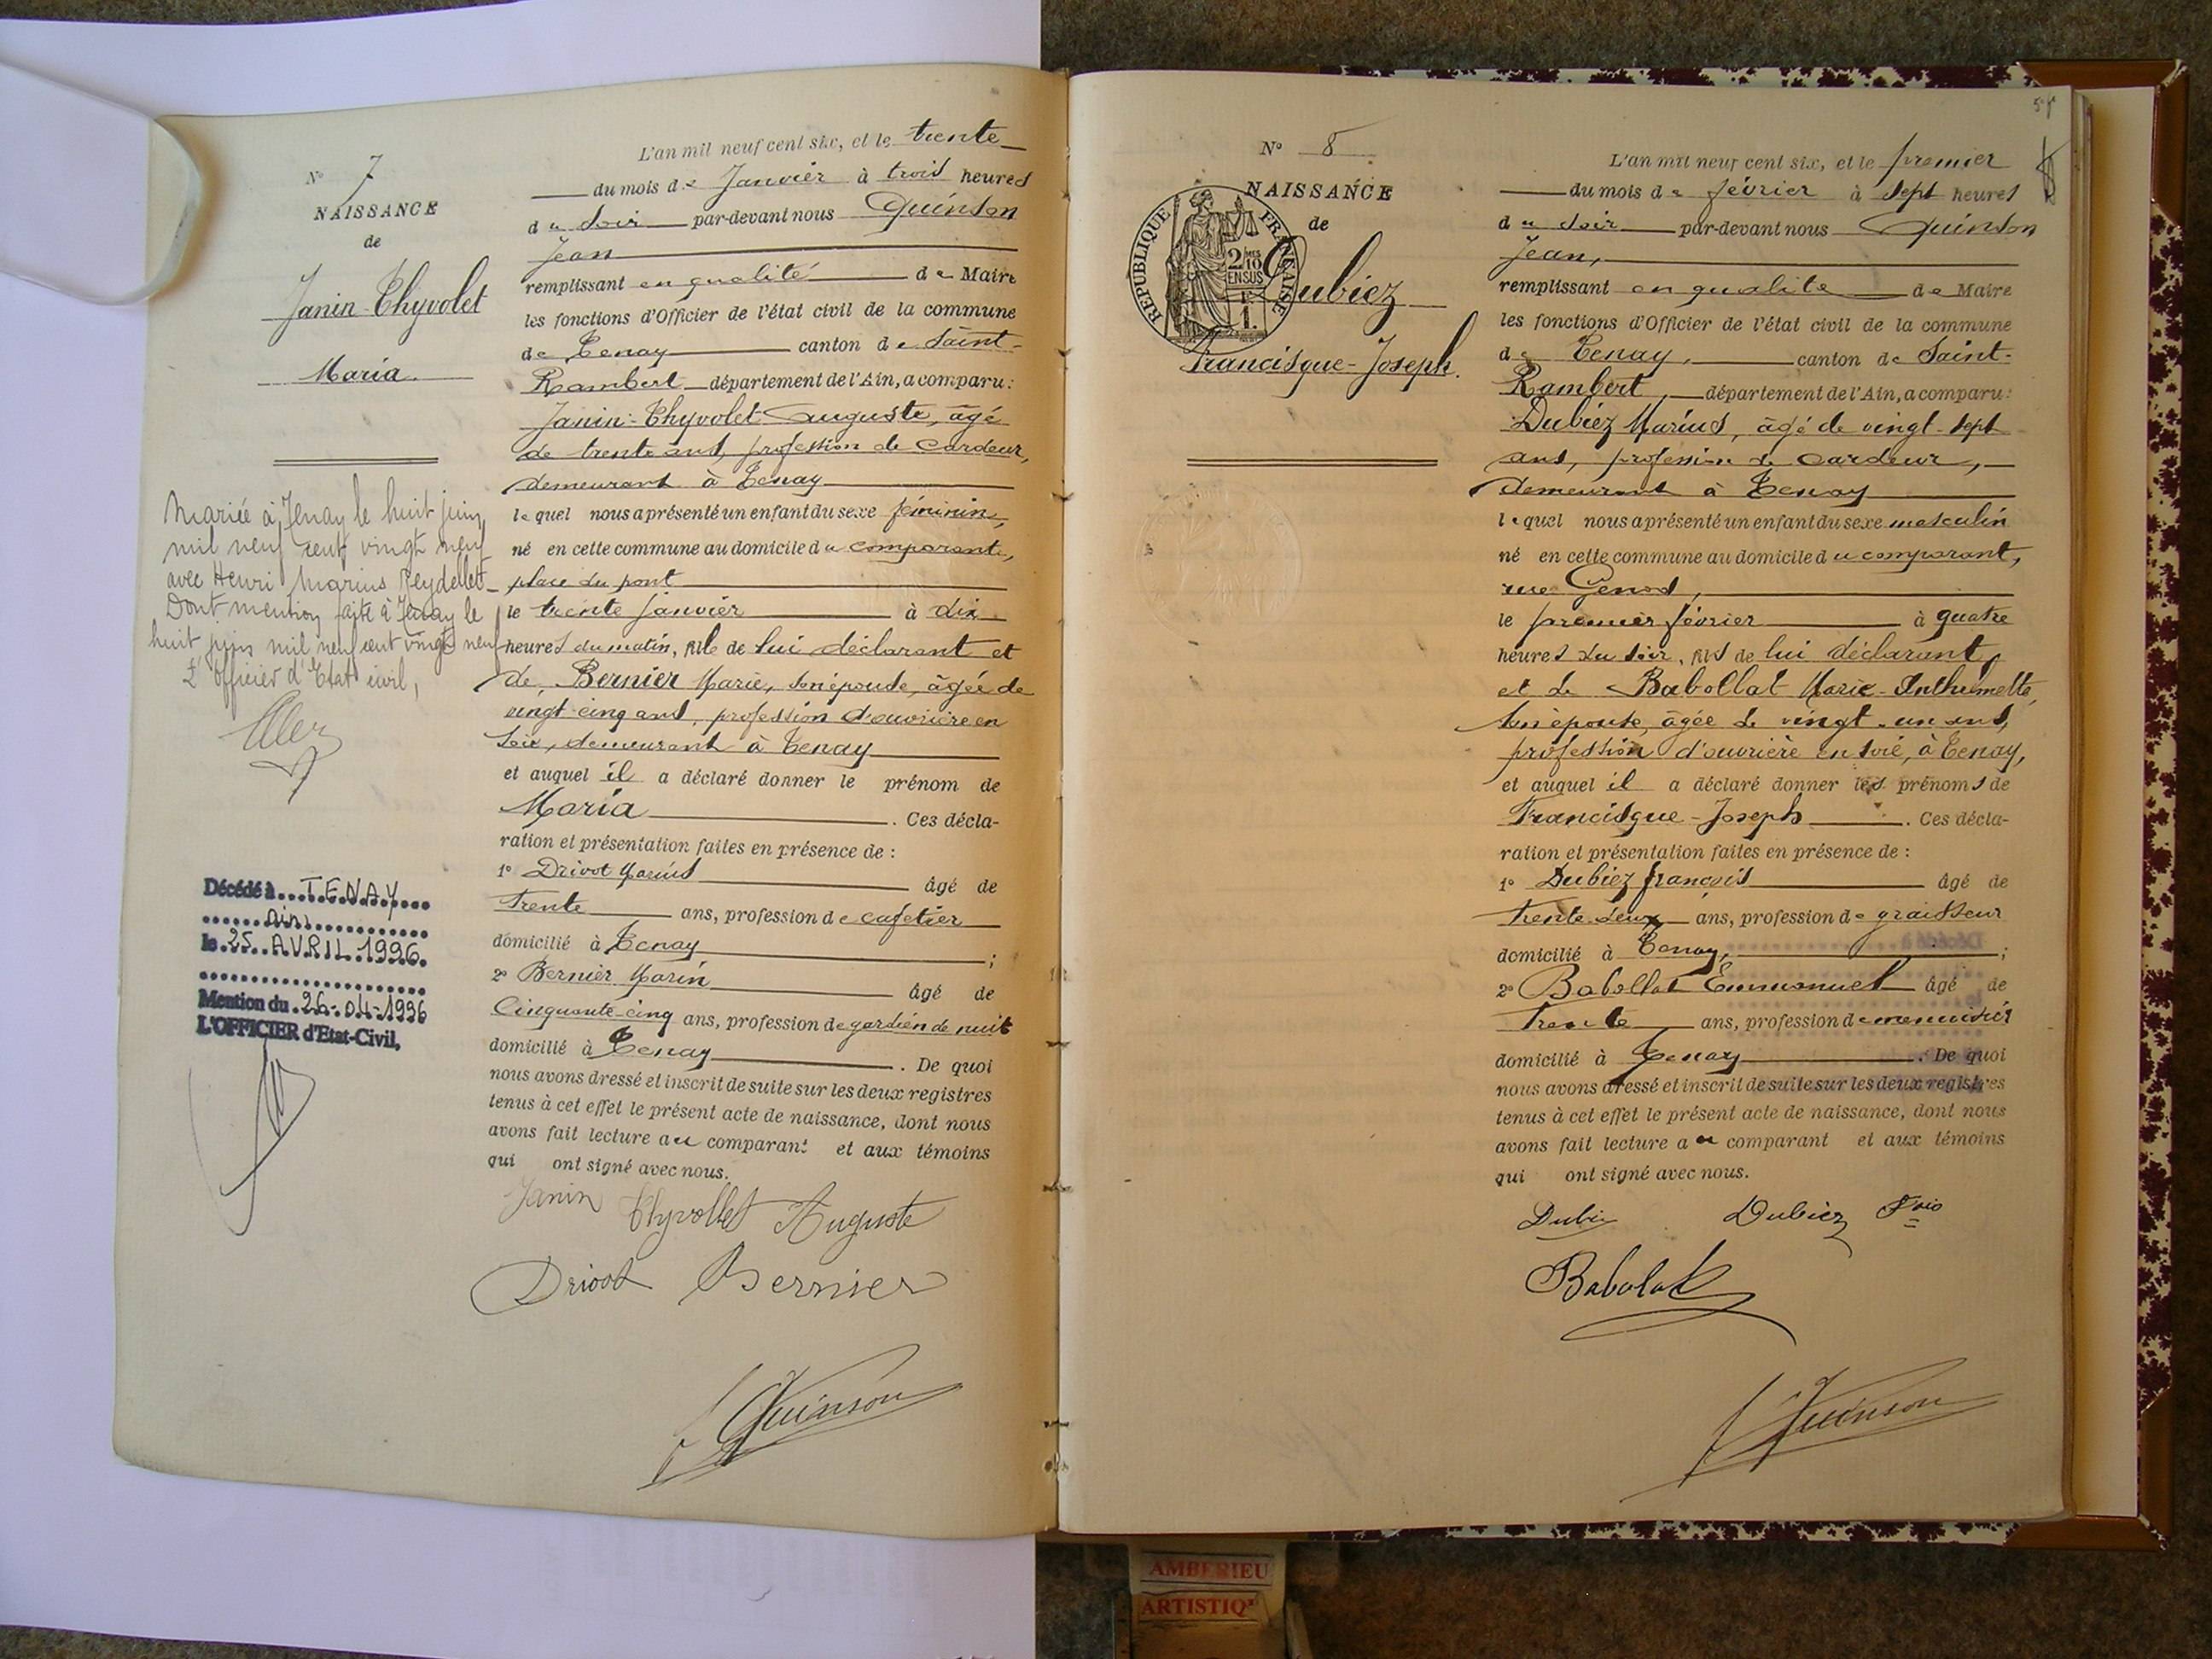 N° 7
NAISSANCE
de
Janin-Thyvolet
Maria
Mariée à Tenay le huit juin
mil neuf cent vingt neuf
avec Henri Marius Peydellet
Dont mention faite à Tenay le
huit juin mil neuf cent vingt neuf
L'officier d'Etat civil,
Décédé à...TENAY...
Ain
le 25 AVRIL 1996.
Mention du 26-04-1996
L'OFFICIER d'Etat-Civil,
L'an mil neuf cent six, et le trente
du mois de Janvier à trois heures
du soir par-devant nous Quinson
Jean
remplissant en qualité de Maire
les fonctions d'Officier de l'état civil de la commune
de Tenay canton de Saint-
Rambert département de l'Ain, a comparu:
Janin-Thyvolet Auguste, âgé
de trente ans, profession de cardeur,
demeurant à Tenay
lequel nous a présenté un enfant du sexe féminin,
né en cette commune au domicile du comparante,
place du pont
le trente janvier à dix
heures du matin, fille de lui déclarant et
de Bernier Marie, son épouse, âgée de
vingt cinq ans, profession d'ouvrière en
soie, demeurant à Tenay
et auquel il a déclaré donner le prénom de
Maria. Ces décla-
ration et présentation faites en présence de :
1° Drivot Marius âgé de
Trente ans, profession de cafetier
domicilié à Tenay ;
2° Bernier Marin âgé de
Cinquante-cinq ans, profession de gardien de nuit
domicilié à Tenay. De quoi
nous avons dressé et inscrit de suite sur les deux registres
tenus à cet effet le présent acte de naissance, dont nous
avons fait lecture au comparant et aux témoins
qui ont signé avec nous.
Janin Thyvollet Auguste
Drivot Bernier
J Quinson
N° 8
NAISSANCE
de
REPUBLIQUE FRANÇAISE
2/10 EN SUS
1F.
Dubiez
Francisque-Joseph.
L'an mil neuf cent six, et le premier
du mois de février à sept heures
du soir par-devant nous Quinson
Jean,
remplissant en qualité de Maire
les fonctions d'Officier de l'état civil de la commune
de Tenay, canton de Saint-
Rambert, département de l'Ain, a comparu:
Dubiez Marius, âgé de vingt-sept
ans, profession de cardeur,
demeurant à Tenay
lequel nous a présenté un enfant du sexe masculin
né en cette commune au domicile du comparant,
rue Genod,
le premier février à quatre
heures du soir, fils de lui déclarant
et de Babollat Marie-Anthelmette,
son épouse, âgée de vingt-un ans,
profession d'ouvrière en soie, à Tenay,
et auquel il a déclaré donner les prénoms de
Francisque-Joseph. Ces décla-
ration et présentation faites en présence de :
1° Dubiez françois âgé de
trente-deux ans, profession de graisseur
domicilié à Tenay, ;
2° Babollat Emmanuel âgé de
Trente ans, profession de menuisier
domicilié à Tenay. De quoi
nous avons dressé et inscrit de suite sur les deux registres
tenus à cet effet le présent acte de naissance, dont nous
avons fait lecture au comparant et aux témoins
qui ont signé avec nous.
Dubiez Dubiez Fois
Babolat
J Quinson
AMBERIEU
ARTISTIQ